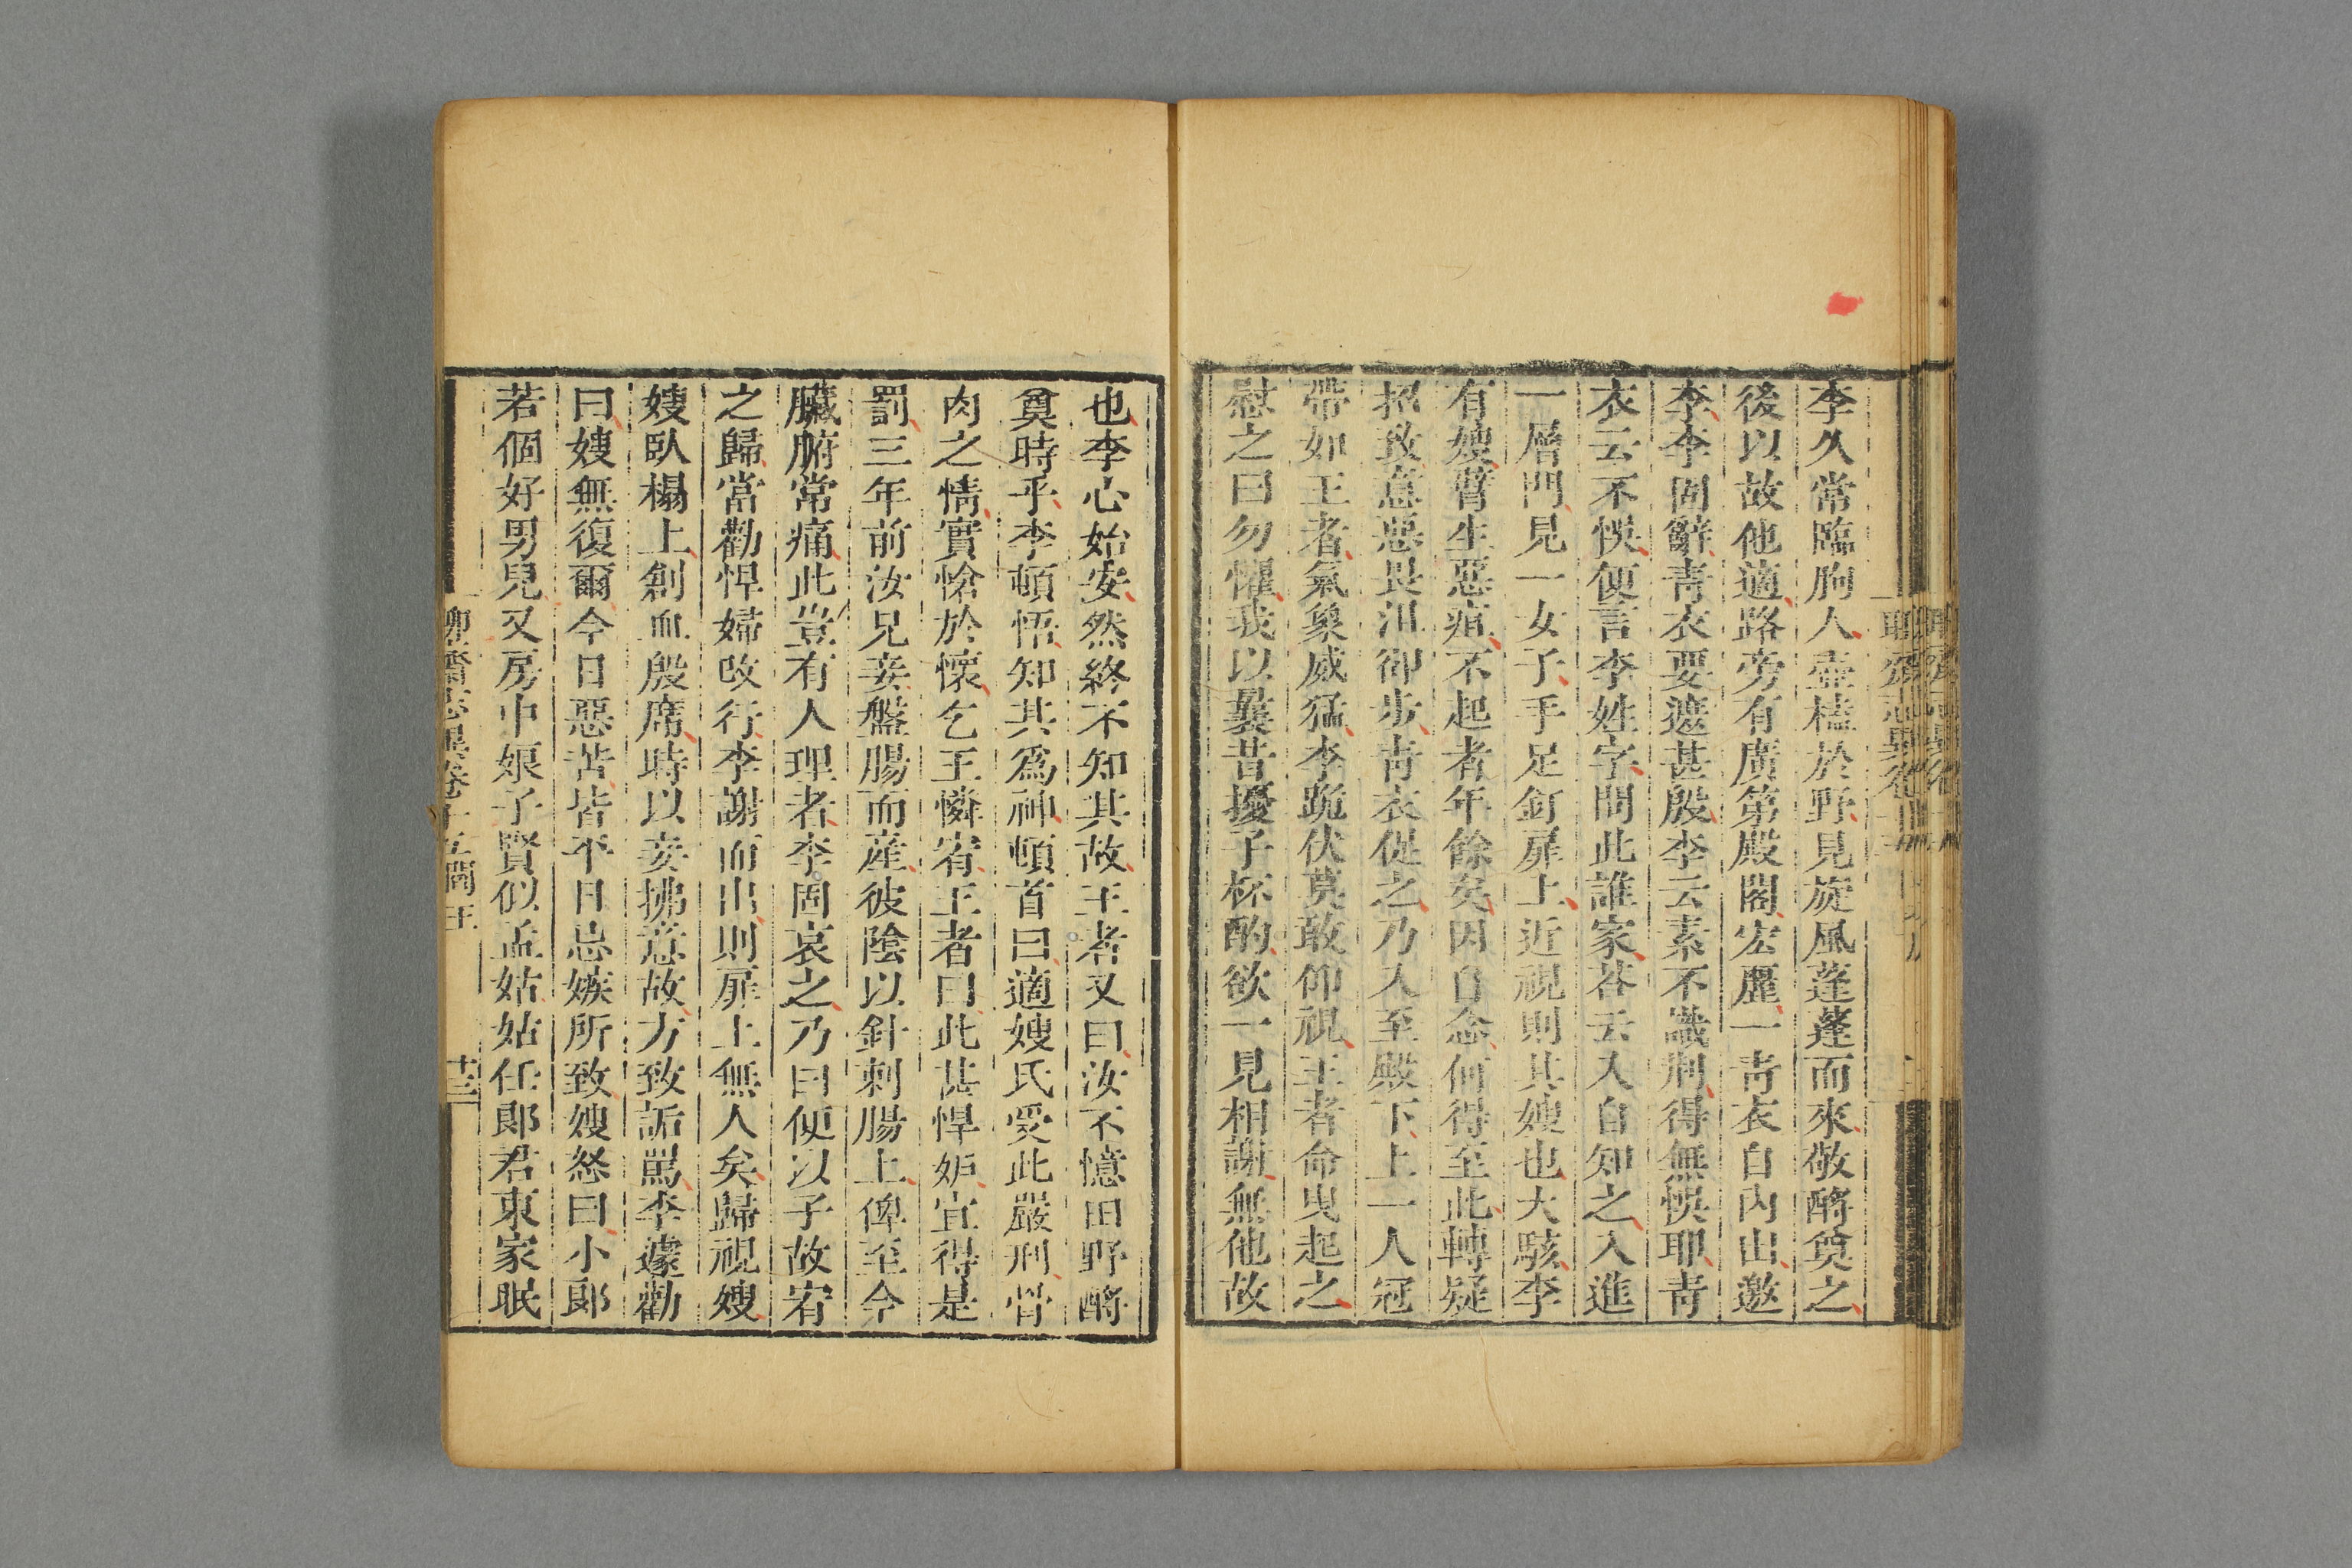 李久常臨朐人壺榼於野見旋風蓬蓬而來敬酹奠之
後以故他適路旁有廣第殿閣宏麗一青衣自內出邀
李李固辭青衣要遮甚殷李云素不識荆得無悮耶青
衣云不悮便言李姓字問此誰家荅云入自知之入進
一層門見一女子手足釘扉上近視則其嫂也大駭李
有嫂臂生惡疽不起者年餘矣因自念何得至此轉疑
招致意惡畏沮卻步青衣促之乃入至殿下上一人冠
帶如王者氣象威猛李跪伏莫敢仰視王者命曳起之
慰之曰勿懼我以曩昔擾子杯酌欲一見相謝無他故
也李心始安然終不知其故王者又曰汝不憶田野酹
奠時乎李頓悟知其爲神頓首曰適嫂氏受此嚴刑骨
肉之情實愴於懷乞王憐宥王者曰此甚悍妒宜得是
罰三年前汝兄妾盤腸而產彼陰以針刺腸上俾至今
臟腑常痛此豈有人理者李固哀之乃曰便以子故宥
之歸當勸悍婦改行李謝而出則扉上無人矣歸視嫂
嫂臥榻上創血殷席時以妾拂意故方致詬罵李遽勸
曰嫂無復爾今日惡苦皆平日忌嫉所致嫂怒曰小郎
若個好男兒又房中娘子賢似孟姑姑任郎君東家眠
聊齋志異卷十五閻王
十三